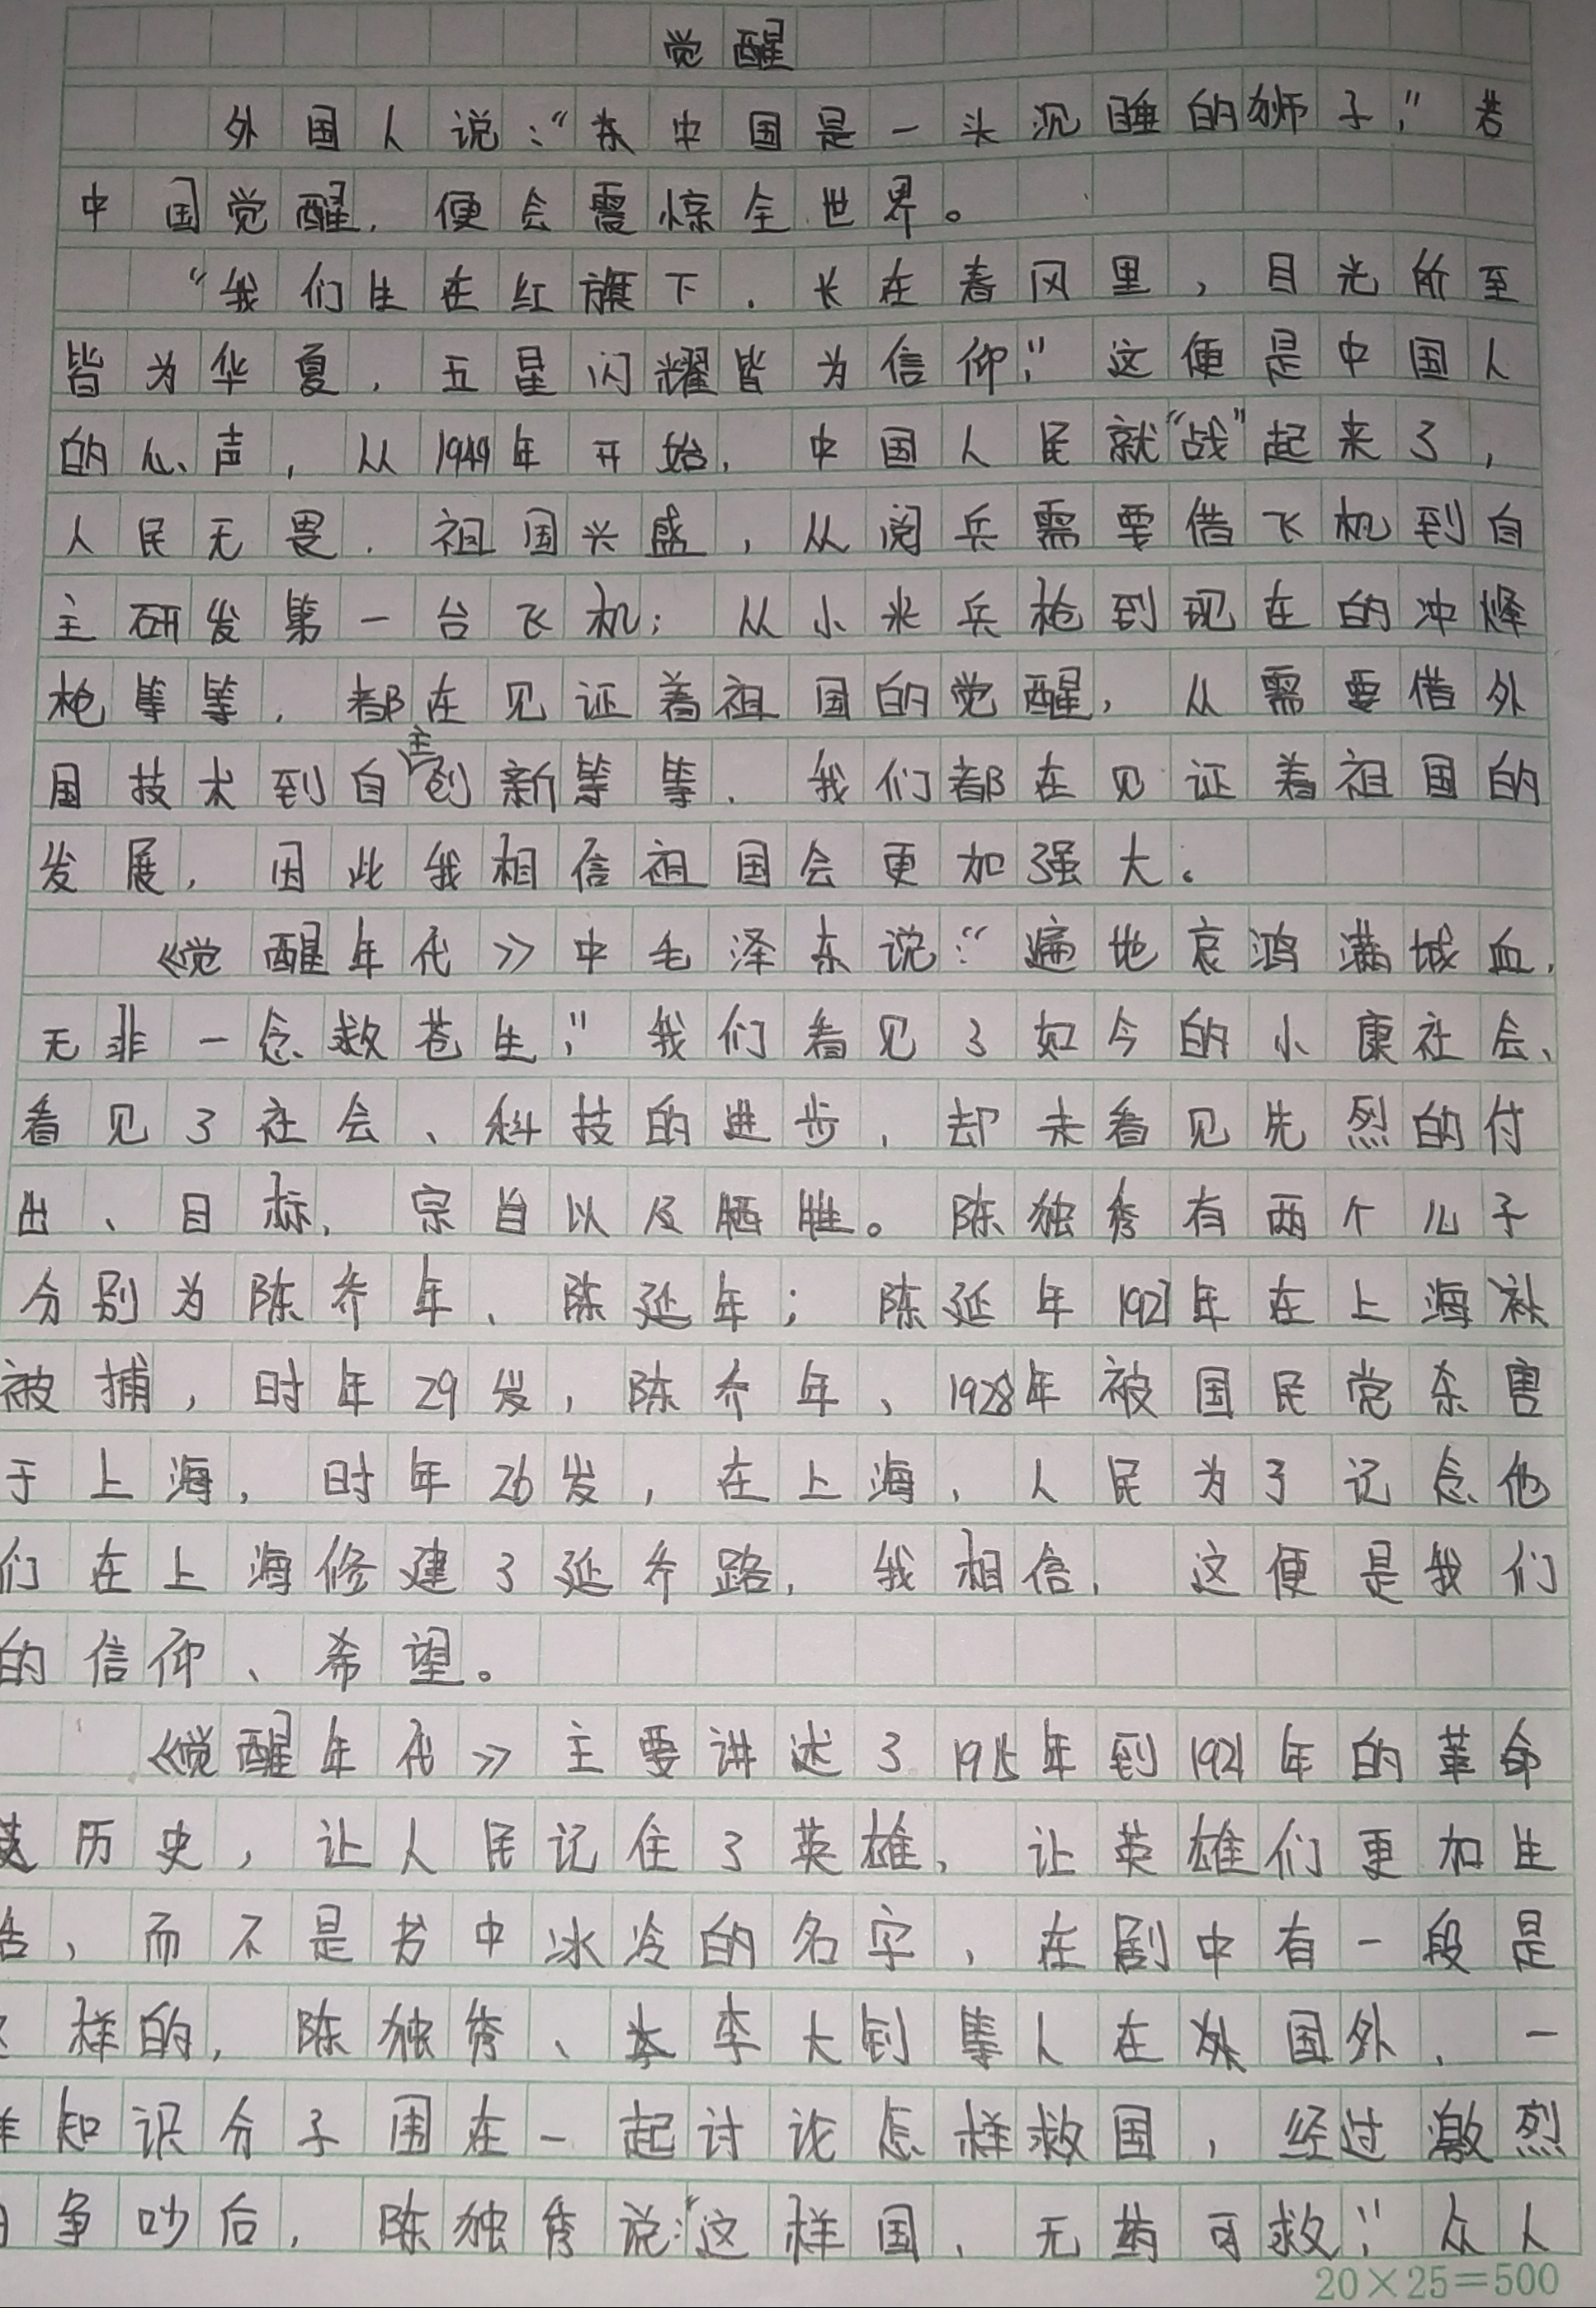 觉醒
外国人说:“东中国是一头沉睡的狮子,”若
中国觉醒,便会震惊全世界。
“我们生在红旗下,长在春风里,目光所至
皆为华夏,五星闪耀皆为信仰,”这便是中国人
的心声,从1949年开始,中国人民就“战”起来了,
人民无畏,祖国兴盛,从阅兵需要借飞机到自
主研发第一台飞机;从小米兵枪到现在的冲烽
枪等等,都在见证着祖国的觉醒,从需要借外
国技术到自主创新等等,我们都在见证着祖国的
发展,因此我相信祖国会更加强大。
《觉醒年代》中毛泽东说:“遍地哀鸿满城血,
无非一念救苍生,”我们看见了如今的小康社会、
看见了社会、科技的进步,却未看见先烈的付
出、目标,宗旨以及牺牲。陈独秀有两个儿子
分别为陈乔年、陈延年;陈延年1927年在上海
被捕,时年29岁,陈乔年、1928年被国民党杀害
于上海,时年26岁,在上海,人民为了记念他
们在上海修建了延乔路,我相信,这便是我们
的信仰、希望。
《觉醒年代》主要讲述了1915年到1921年的革命
历史,让人民记住了英雄,让英雄们更加生
活,而不是书中冰冷的名字,在剧中有一段是
这样的,陈独秀、李大钊等人在外国外,一
群知识分子围在一起讨论怎样救国,经过激烈
的争吵后,陈独秀说:“这样国,无药可救,”众人
20×25=500